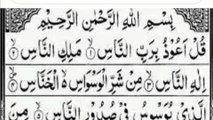 بِسْمِ اللّٰهِ الرَّحْمٰنِ الرَّحِيْمِ
قُلْ اَعُوْذُ بِرَبِّ النَّاسِ ۙ﴿۱﴾ مَلِكِ النَّاسِ ۙ﴿۲﴾
اِلٰهِ النَّاسِ ۙ﴿۳﴾ مِنْ شَرِّ الْوَسْوَاسِ ۙ الْخَنَّاسِ ۙ﴿۴﴾
الَّذِيْ يُوَسْوِسُ فِيْ صُدُوْرِ النَّاسِ ۙ﴿۵﴾ مِنَ